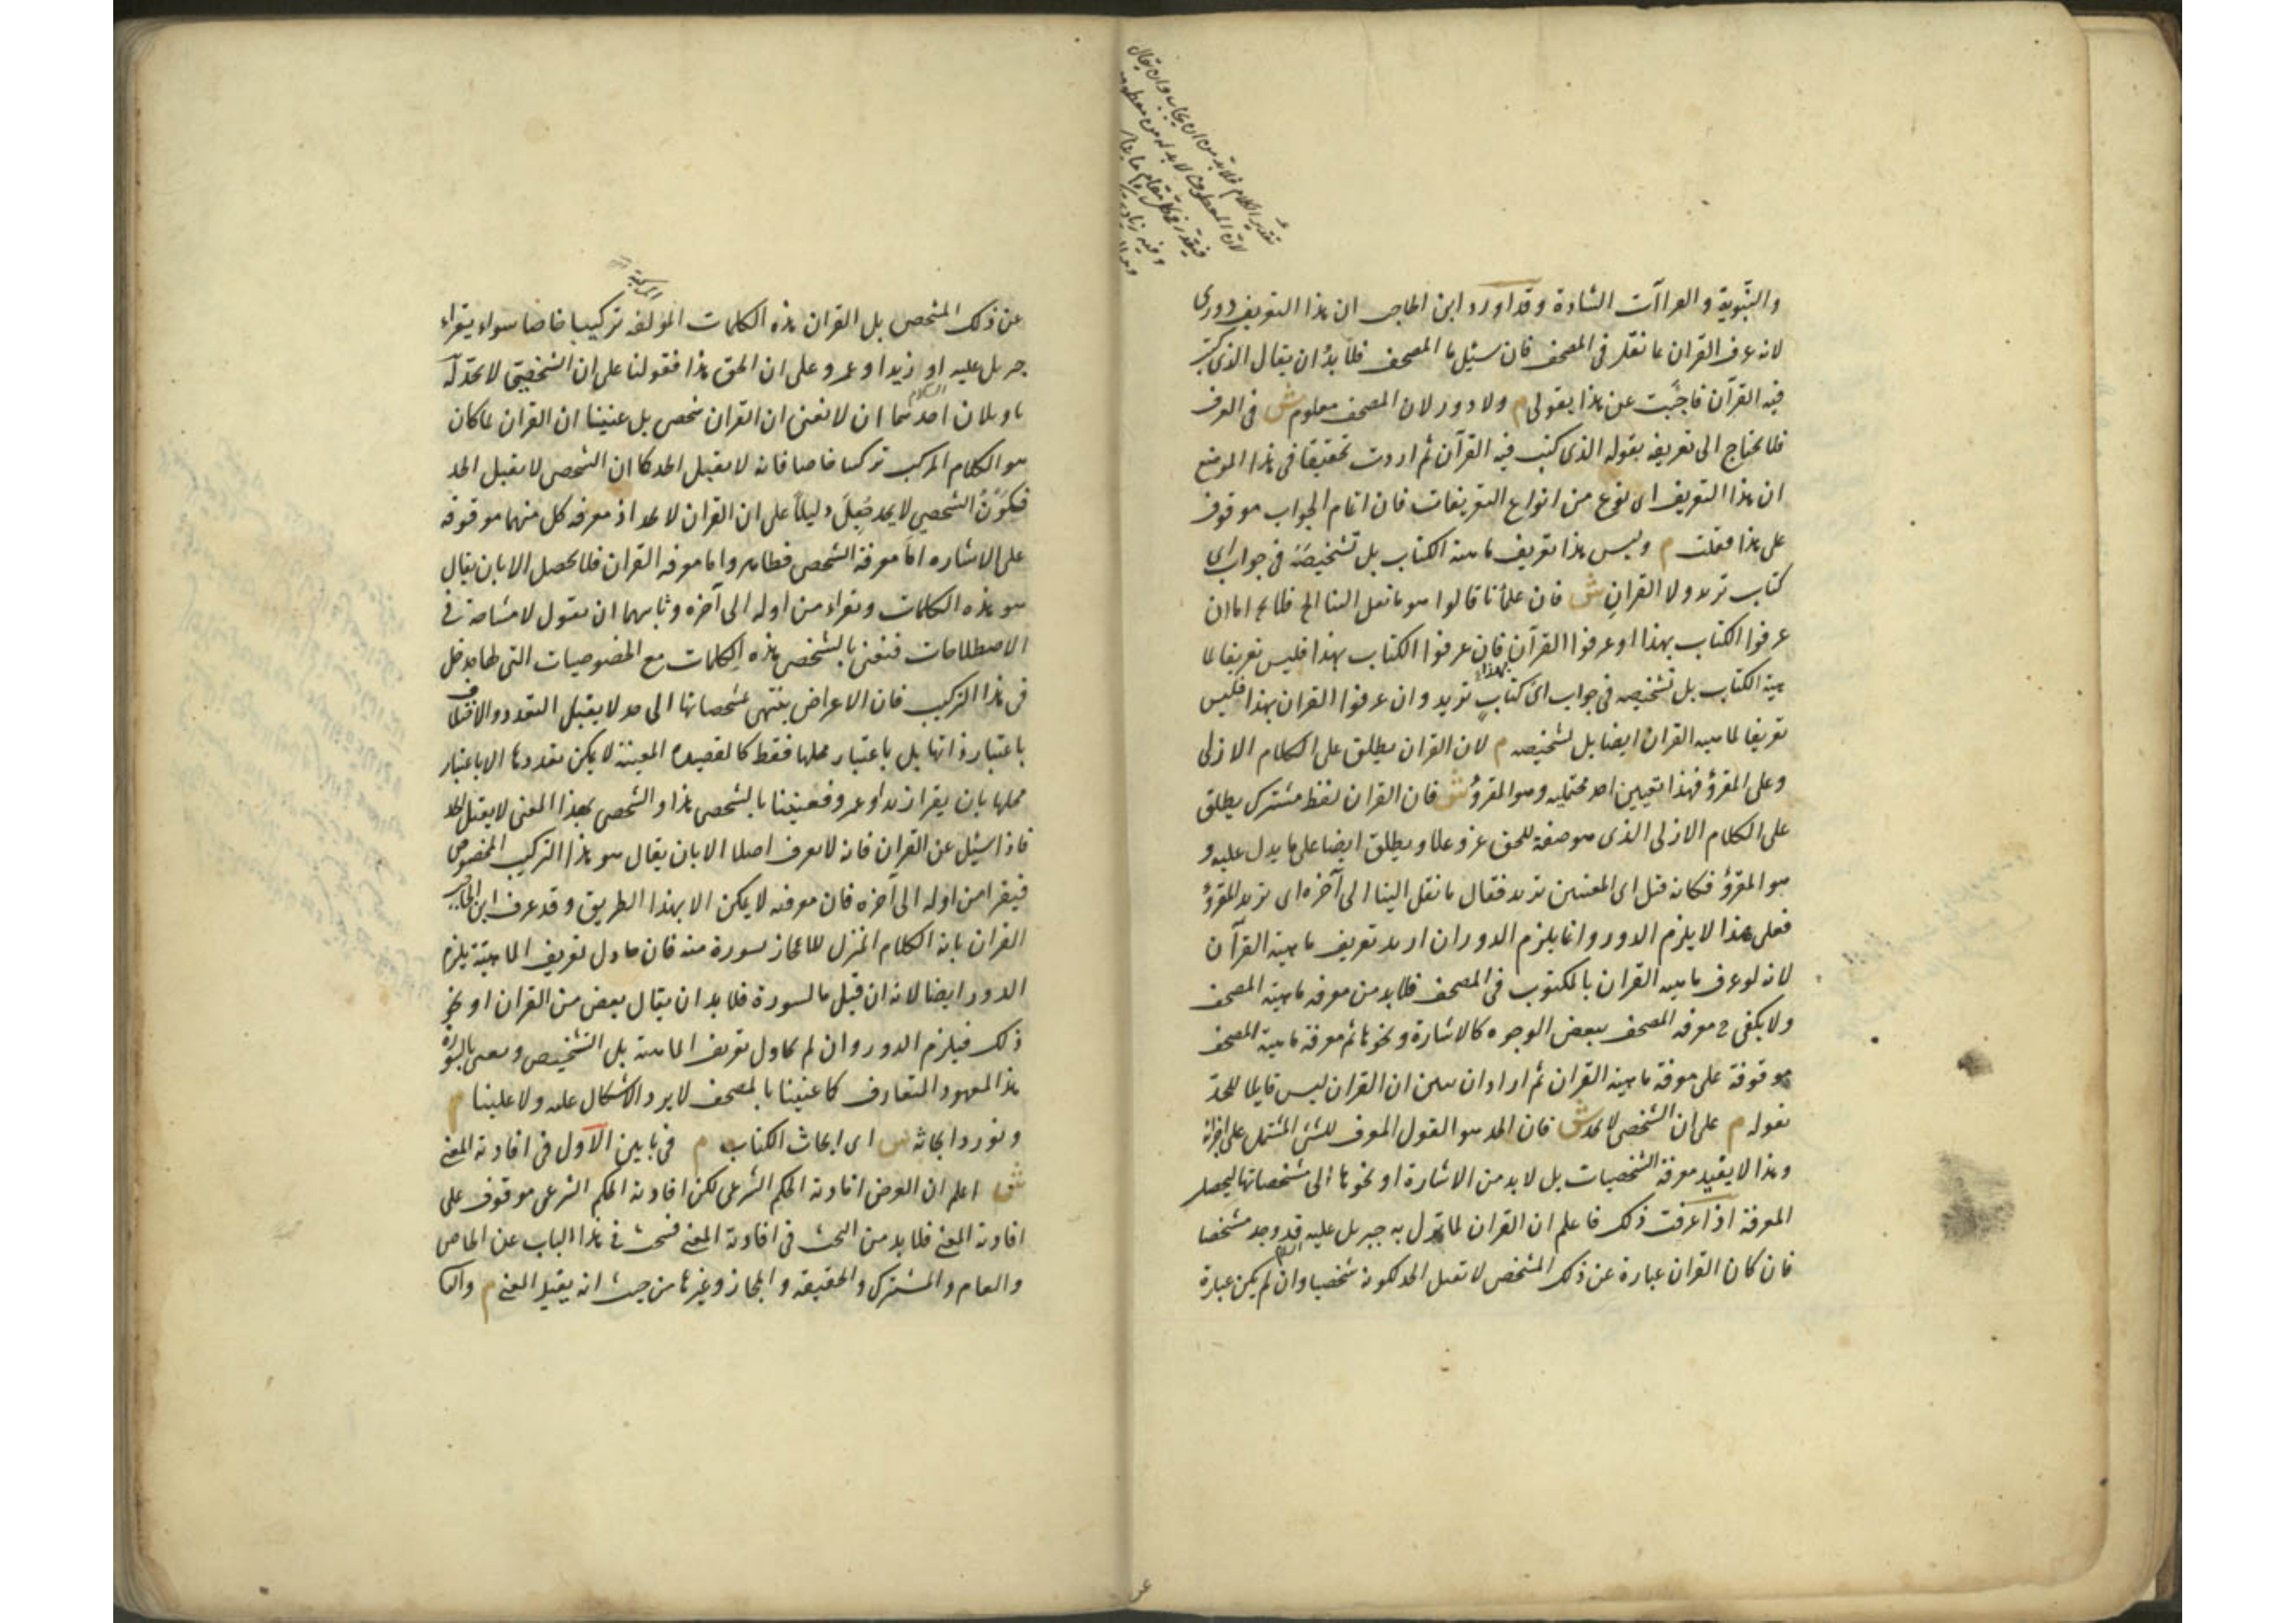 والنبوية والقراآت الشاذة وقد اورد ابن الحاجب ان هذا التعريف دورى
لانه عرف القران بما نقل فى المصحف فان سئل ما المصحف فلا بد ان يقال الذى كتب
فيه القرآن فاجبت عن هذا بقولى م ولا دور لان المصحف معلوم ش فى العرف
فلا يحتاج الى تعريفه بقوله الذى كتب فيه القرآن ثم اردت تحقيقا فى هذا الموضع
ان هذا التعريف اى نوع من انواع التعريفات فان اتمام الجواب موقوف
على هذا فقلت م وليس هذا تعريف ماهية الكتاب بل تشخيصه فى جواب اى
كتاب تريد ولا القران ش فان علمائنا قالوا هو ما نقل الينا الخ فلا يخ اما ان
عرفوا الكتاب بهذا او عرفوا القرآن بهذا فان عرفوا الكتاب بهذا فليس تعريفا لما
هية الكتاب بل تشخيصه فى جواب اى كتاب تريد وان عرفوا القران بهذا فليس
تعريفا لماهية القران ايضا بل تشخيصه م لان القران يطلق على الكلام الازلى
وعلى المقرؤ فهذا تعيين احد محتمليه وهو المقرؤ ش فان القران لفظ مشترك يطلق
على الكلام الازلى الذى هو صفة للحق عز وعلا ويطلق ايضا على ما يدل عليه و
هو المقرؤ فكانه قيل اى المعنيين تريد فقال ما نقل الينا الى آخره اى تريد المقرؤ
فعلى هذا لا يلزم الدور وانما يلزم الدور ان اريد تعريف ماهية القرآن
لانه لو عرف ماهية القران بالمكتوب فى المصحف فلا بد من معرفة ماهية المصحف
ولا يكفى ح معرفة المصحف ببعض الوجوه كالاشارة ونحوها ثم معرفة ماهية المصحف
موقوفة على معرفة ماهية القران ثم اراد ان يبين ان القران ليس قابلا للحد
بقوله م على ان الشخصى لا يحد ش فان الحد هو القول المعرف للشئ المشتمل على اجزائه
وهذا لا يفيد معرفة الشخصيات بل لا بد من الاشارة او نحوها الى مشخصاتها ليحصل
المعرفة اذا عرفت ذلك فاعلم ان القران لما نزل به جبريل عليه السلام قد وجد مشخصا
فان كان القران عبارة عن ذلك المشخص لا يقبل الحد لكونه شخصيا وان لم يكن عبارة
عن ذلك المشخص بل القران هذه الكلمات المؤلفة تركيبا خاصا سواء يقراء
جبريل عليه السلام او زيد او عمرو على ان الحق هذا فقولنا على ان الشخصى لا يحد له
تاويلان احدهما ان لا نعنى ان القران شخصى بل عنينا ان القران لما كان
هو الكلام المركب تركيبا خاصا فانه لا يقبل الحد كما ان الشخصى لا يقبل الحد
فكون الشخصى لا يحد جعل دليلا على ان القران لا يحد اذ معرفة كل منهما موقوفة
على الاشارة اما معرفة الشخصى فظاهر واما معرفة القران فلا يحصل الا بان يقال
هو هذه الكلمات ويقراء من اوله الى آخره وثانيهما ان نقول لا مشاحة فى
الاصطلاحات فنعنى بالشخصى هذه الكلمات مع الخصوصيات التى لها مدخل
فى هذا التركيب فان الاعراض ينتهى بمشخصاتها الى حد لا يقبل التعدد والاختلاف
باعتبار ذاتها بل باعتبار محلها فقط كالقصيدة المعينة لا يمكن تعددها الا باعتبار
محلها بان يقرا زيد او عمرو فعنينا بالشخصى هذا والشخصى بهذا المعنى لا يقبل الحد
فاذا سئل عن القران فانه لا يعرف اصلا الا بان يقال هو هذا التركيب المخصوص
فيقرا من اوله الى آخره فان معرفته لا يمكن الا بهذا الطريق وقد عرف ابن الحاجب
القران بانه الكلام المنزل للاعجاز بسورة منه فان حاول تعريف الماهية يلزم
الدور ايضا لانه ان قيل ما السورة فلا بد ان يقال بعض من القران او نحو
ذلك فيلزم الدور وان لم يحاول تعريف الماهية بل التشخيص ويعنى بالسورة
هذا المعهود المتعارف كما عنينا بالمصحف لا يرد الاشكال عليه ولا علينا م
ونورد ابحاثه ش اى ابحاث الكتاب م فى بابين الاول فى افادته المعنى
ش اعلم ان الغرض افادته الحكم الشرعى لكن افادته الحكم الشرعى موقوف على
افادته المعنى فلا بد من البحث فى افادته المعنى فيبحث فى هذا الباب عن الخاص
والعام والمشترك والحقيقة والمجاز وغيرها من حيث انه يفيد المعنى م والثا